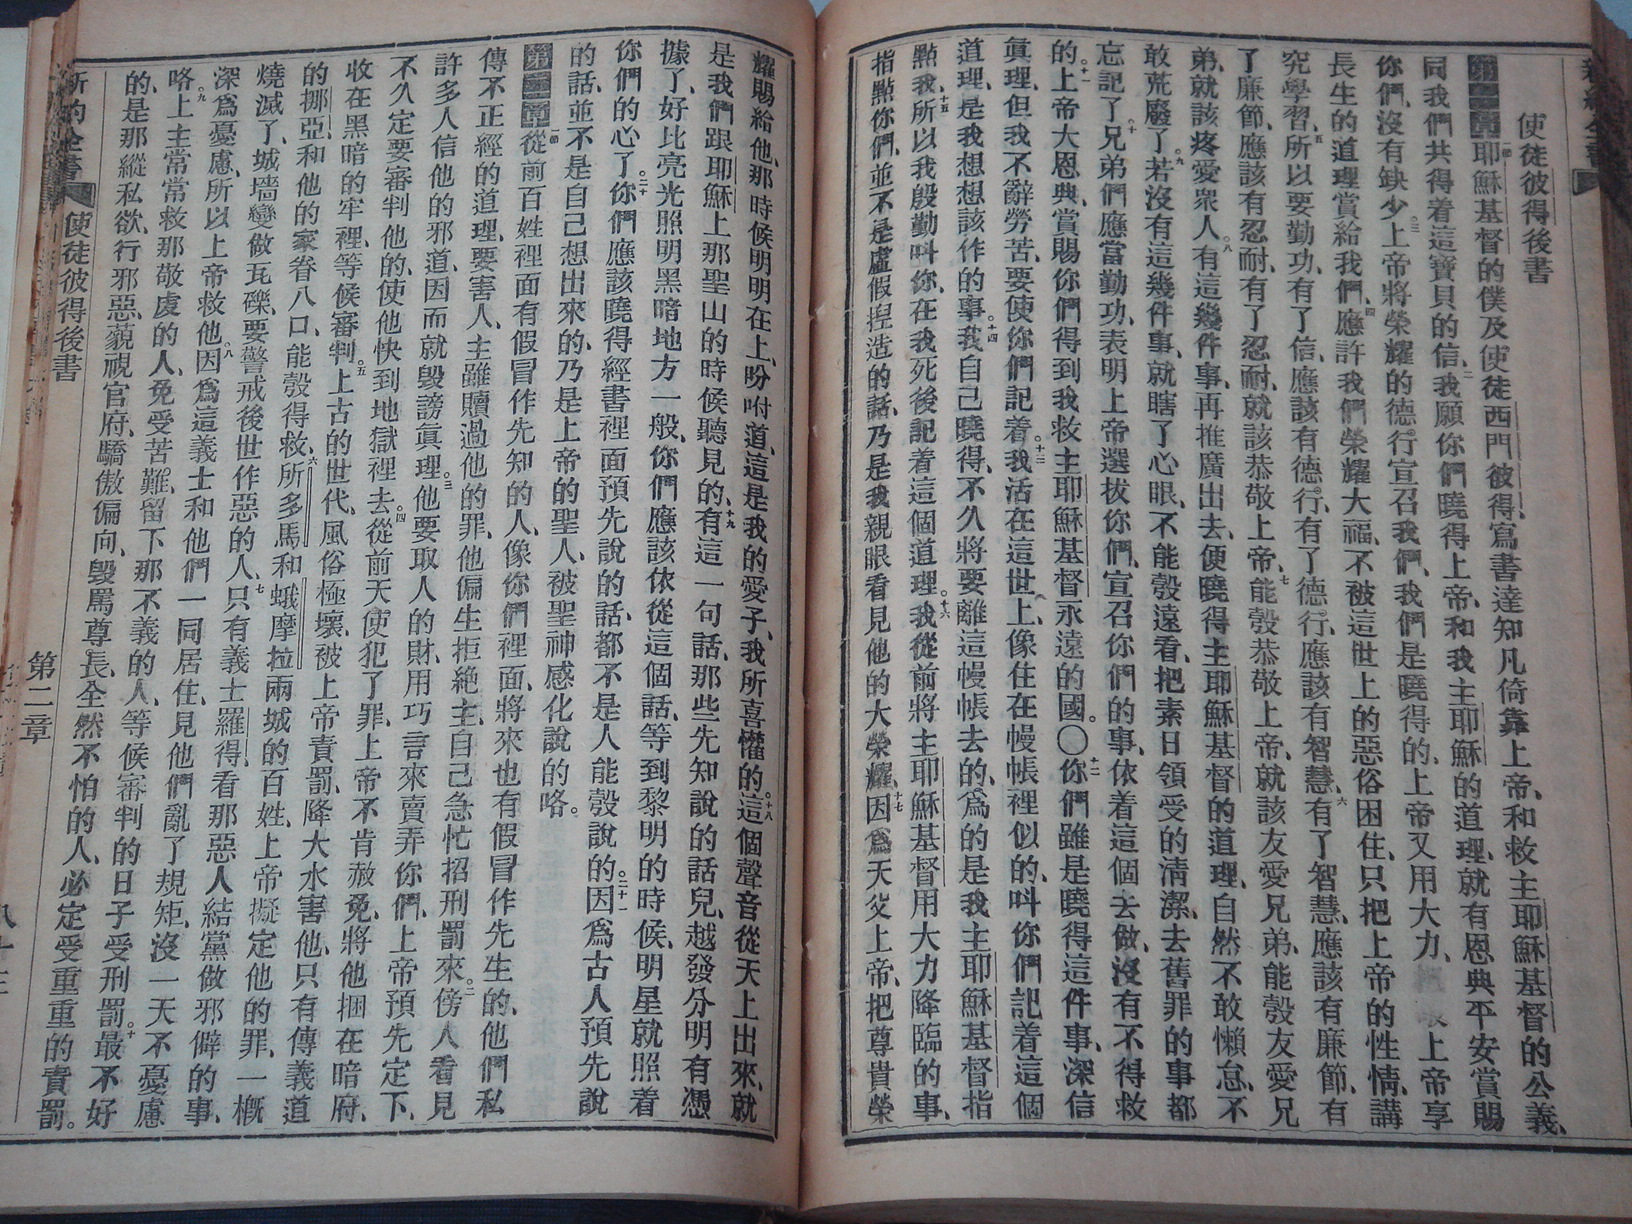 使徒彼得後書
第一章一節耶穌基督的僕及使徒西門彼得、寫書達知凡倚靠上帝、和救主耶穌基督的公義、
同我們共得着這寶貝的信、二我願你們曉得上帝、和我主耶穌的道理、就有恩典平安賞賜
你們、沒有缺少。三上帝將榮耀的德行宣召我們、我們是曉得的、上帝又用大力、上帝享
長生的道理賞給我們、四應許我們榮耀大福、不被這世上的惡俗困住、只把上帝的性情、講
究學習、五所以要勤功、有了信、應該有德行、有了德行、應該有智慧、六有了智慧、應該有廉節、有
了廉節、應該有忍耐、有了忍耐、就該恭敬上帝、七能彀恭敬上帝、就該友愛兄弟、能彀友愛兄
弟、就該疼愛衆人。八有這幾件事、再推廣出去、便曉得主耶穌基督的道理、自然不敢懶怠、不
敢荒廢了。九若沒有這幾件事、就瞎了心眼、不能彀遠看、把素日領受的清潔、去舊罪的事都
忘記了。十兄弟們應當勤功、表明上帝選拔你們、宣召你們的事、依着這個去做、沒有不得救
的。十一上帝大恩典、賞賜你們得到我救主耶穌基督永遠的國。〇十二你們雖是曉得這件事、深信
眞理、但我不辭勞苦、要使你們記着。十三我活在這世上、像住在幔帳裡似的、呌你們記着這個
道理、是我想想該作的事。十四我自己曉得、不久將要離這幔帳去的、爲的是我主耶穌基督指
點我、十五所以我殷勤呌你、在我死後記着這個道理。十六我從前將主耶穌基督用大力降臨的事、
指點你們、並不是虛假揑造的話、乃是我親眼看見他的大榮耀、十七因爲天父上帝、把尊貴榮
耀賜給他、那時候明明在上、吩咐道、這是我的愛子、我所喜懽的。十八這個聲音從天上出來、就
是我們跟耶穌上那聖山的時候聽見的、十九有這一句話、那些先知說的話兒、越發分明有憑
據了、好比亮光照明黑暗地方一般、你們應該依從這個話、等到黎明的時候、明星就照着
你們的心了。二十你們應該曉得經書裡面預先說的話、都不是人能彀說的。二十一因爲古人預先說
的話、並不是自己想出來的、乃是上帝的聖人、被聖神感化說的咯。
第二章一節從前百姓裡面有假冒作先知的人、像你們裡面、將來也有假冒作先生的、他們私
傳不正經的道理、要害人、主雖贖過他的罪、他偏生拒絶主、自己急忙招刑罰來。二傍人看見
許多人信他的邪道、因而就毀謗眞理。三他要取人的財、用巧言來賣弄你們、上帝預先定下、
不久定要審判他的、使他快到地獄裡去。四從前天使犯了罪、上帝不肯赦免、將他捆在暗府、
收在黑暗的牢裡、等候審判。五上古的世代、風俗極壞、被上帝責罰、降大水害他、只有傳義道
的挪亞、和他的家眷八口、能彀得救、六所多馬和蛾摩拉兩城的百姓、上帝擬定他的罪、一概
燒滅了、城墻變做瓦礫、要警戒後世作惡的人、七只有義士羅得、看那惡人結黨做邪僻的事、
深爲憂慮、所以上帝救他。八因爲這義士和他們一同居住、見他們亂了規矩、沒一天不憂慮
咯。九上主常常救那敬虔的人、免受苦難、留下那不義的人、等候審判的日子受刑罰。十最不好
的、是那縱私欲、行邪惡、藐視官府、驕傲偏向、毀罵尊長、全然不怕的人、必定受重重的責罰。
新約全書
使徒彼得後書
第二章